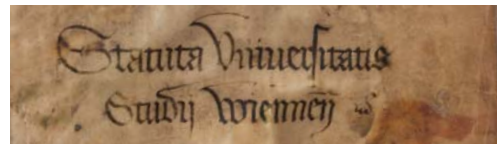 Statuta Vniuersitatis
Studij Wiennen̄